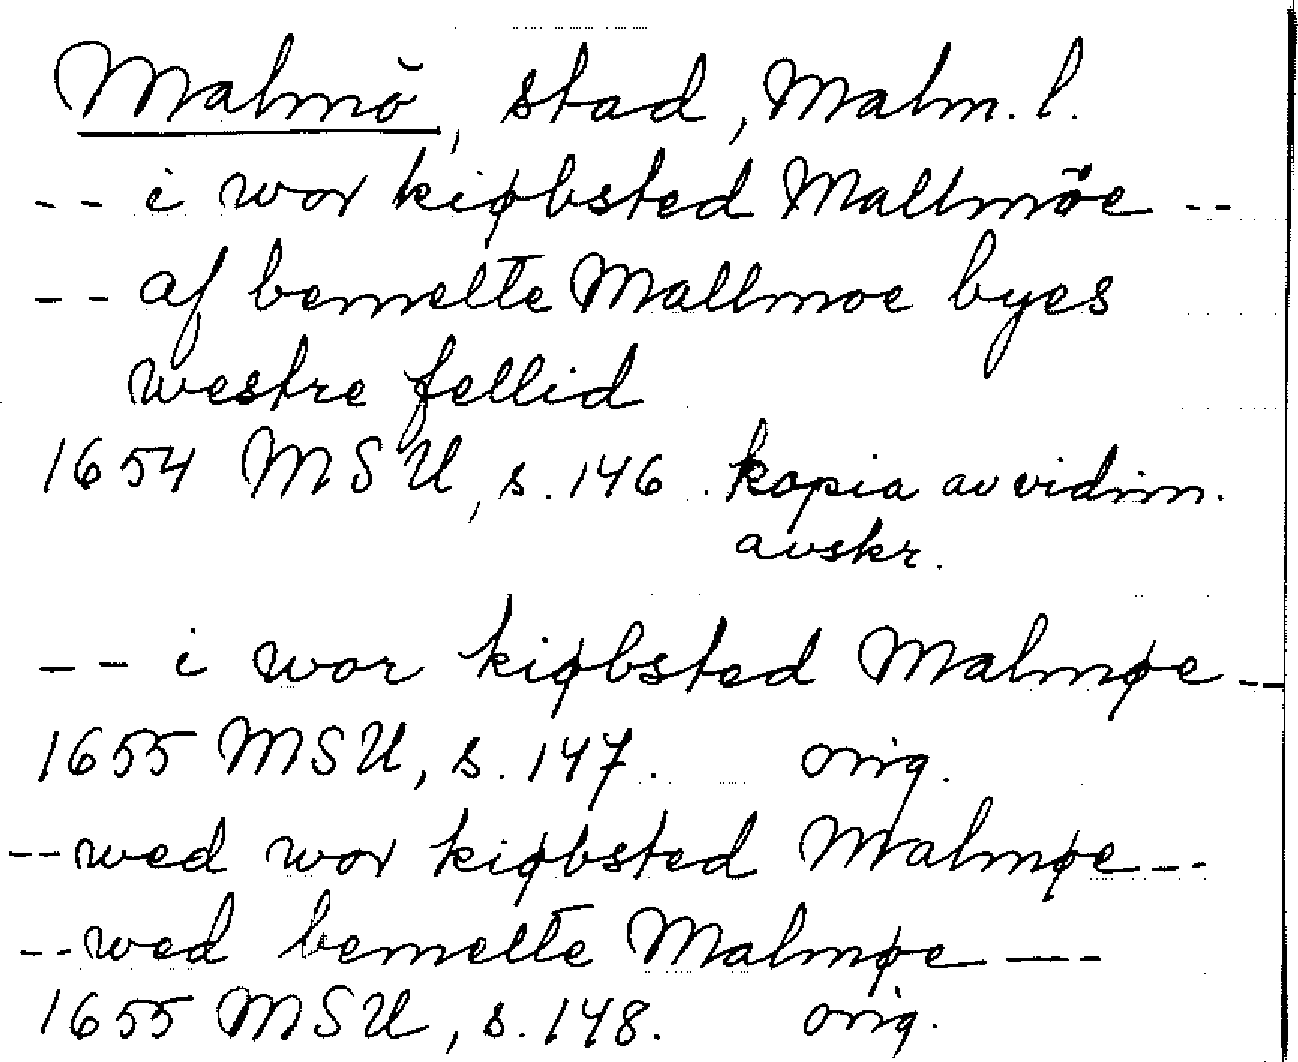 Malmö, stad, Malm. l.
-- i wor kiøbsted Mallmöe --
-- af bemelte Mallmoe byes
westre fellid
1654 MSU, s. 146. kopia av vidim.
avskr.
-- i wor kiøbsted Malmøe --
1655 MSU, s. 147. orig.
-- wed wor kiøbsted Malmøe --
-- wed bemelte Malmøe ---
1655 MSU, s. 148. orig.